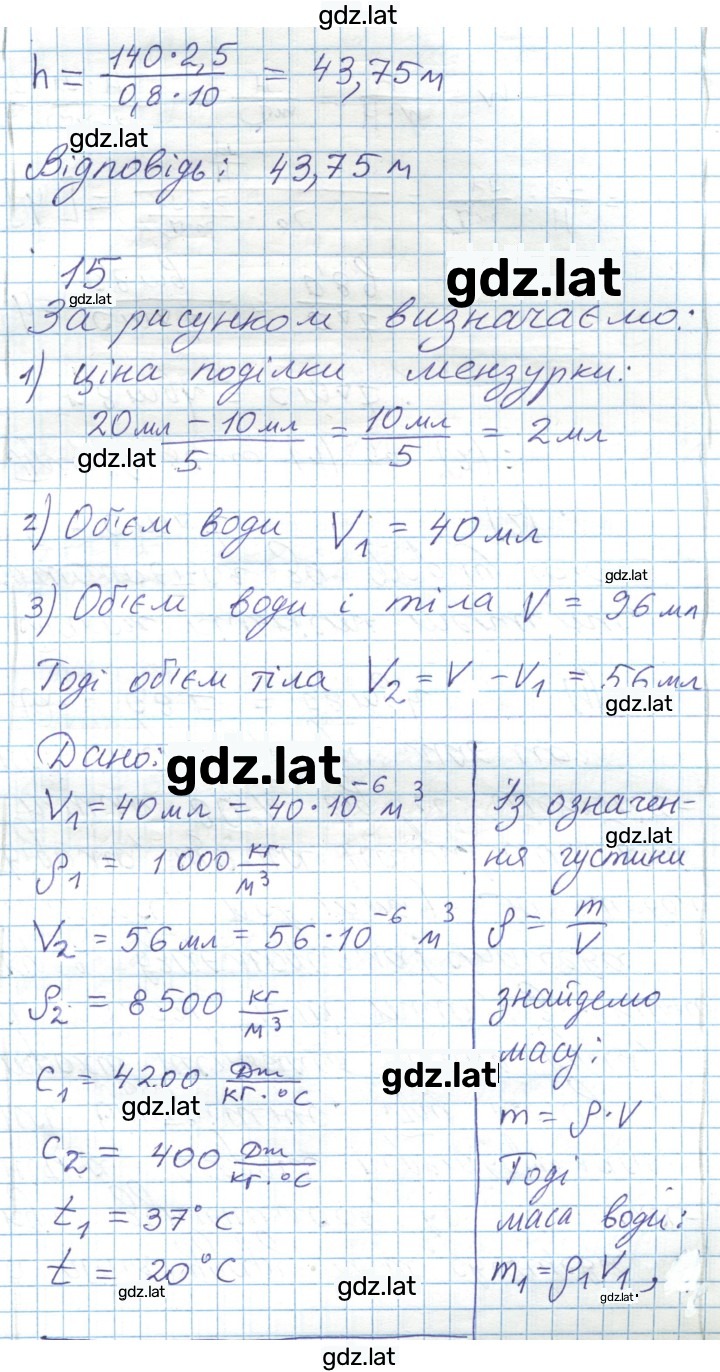 gdz.lat
h = 140·2,5 / 0,8·10 = 43,75 м
gdz.lat
Відповідь: 43,75 м
15
gdz.lat
gdz.lat
За рисунком визначаємо:
1) ціна поділки мензурки:
20мл − 10мл / 5 = 10мл / 5 = 2мл
gdz.lat
2) Об'єм води V₁ = 40мл
gdz.lat
3) Об'єм води і тіла V = 96мл
Тоді об'єм тіла V₂ = V − V₁ = 56мл
gdz.lat
Дано:
gdz.lat
V₁ = 40мл = 40·10⁻⁶ м³
ρ₁ = 1000 кг/м³
V₂ = 56мл = 56·10⁻⁶ м³
ρ₂ = 8500 кг/м³
c₁ = 4200 Дж/кг·°C
gdz.lat
c₂ = 400 Дж/кг·°C
t₁ = 37°C
t = 20°C
gdz.lat
Із означен-
gdz.lat
ня густини
ρ = m/V
знайдемо
масу:
gdz.lat
m = ρ·V
Тоді
маса води:
m₁ = ρ₁V₁,
gdz.lat
gdz.lat
gdz.lat